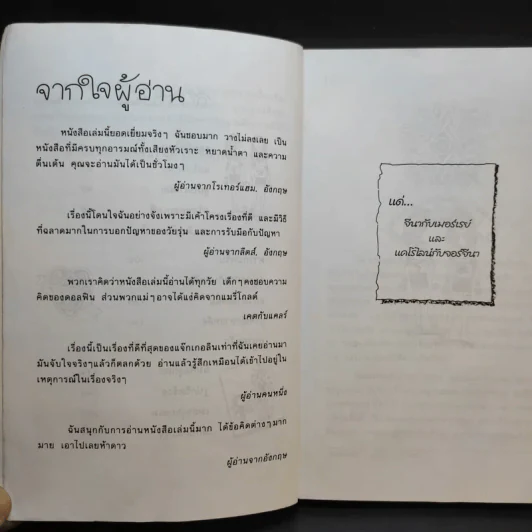 จากใจผู้อ่าน
หนังสือเล่มนี้ยอดเยี่ยมจริงๆ ฉันชอบมาก วางไม่ลงเลย เป็น
หนังสือที่มีครบทุกอารมณ์ทั้งเสียงหัวเราะ หยาดน้ำตา และความ
ตื่นเต้น คุณจะอ่านมันได้เป็นชั่วโมงๆ
ผู้อ่านจากโรเทอร์แฮม, อังกฤษ
เรื่องนี้โดนใจฉันอย่างจังเพราะมีเค้าโครงเรื่องที่ดี และมีวิธี
ที่ฉลาดมากในการบอกปัญหาของวัยรุ่น และการรับมือกับปัญหา
ผู้อ่านจากลีดส์, อังกฤษ
พวกเราคิดว่าหนังสือเล่มนี้อ่านได้ทุกวัย เด็กๆ คงชอบความ
คิดของดอลฟิน ส่วนพวกแม่ๆ อาจได้แง่คิดจากแมรี่โกลด์
เคตกับแคลร์
เรื่องนี้เป็นเรื่องที่ดีที่สุดของแจ๊กเกอลีนเท่าที่ฉันเคยอ่านมา
มันจับใจจริงๆ แล้วก็ตลกด้วย อ่านแล้วรู้สึกเหมือนได้เข้าไปอยู่ใน
เหตุการณ์ในเรื่องจริงๆ
ผู้อ่านคนหนึ่ง
ฉันสนุกกับการอ่านหนังสือเล่มนี้มาก ได้ข้อคิดต่างๆ มาก
มาย เอาไปเลยห้าดาว
ผู้อ่านจากอังกฤษ
แด่...
จีนากับเมอร์เรย์
และ
แคโรไลน์กับจอร์จีนา